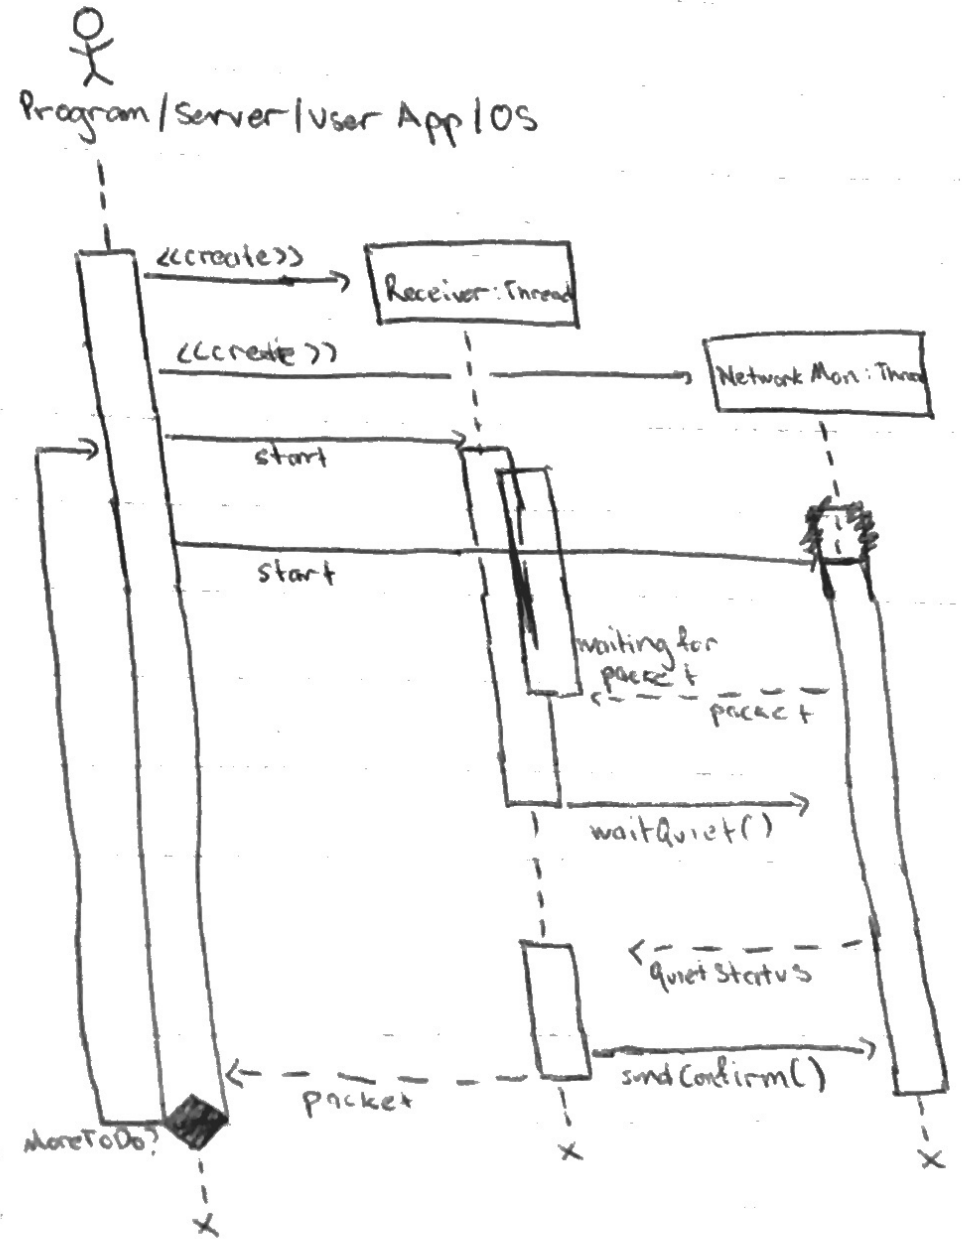 Program/Server/User App/OS
<<create>>
Receiver:Thread
<<create>>
NetworkMon:Threa
start
start
waiting for
packet
packet
waitQuiet()
QuietStatus
sendConfirm()
packet
MoreToDo?
X
X
X